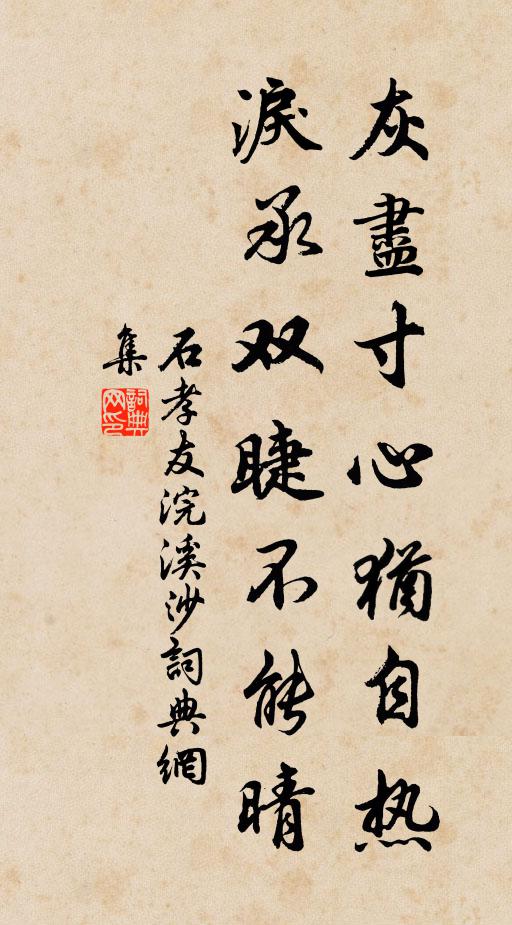 灰盡寸心猶自热
淚承双睫不能晴
石孝友浣溪沙詞典網
集
詞典网印